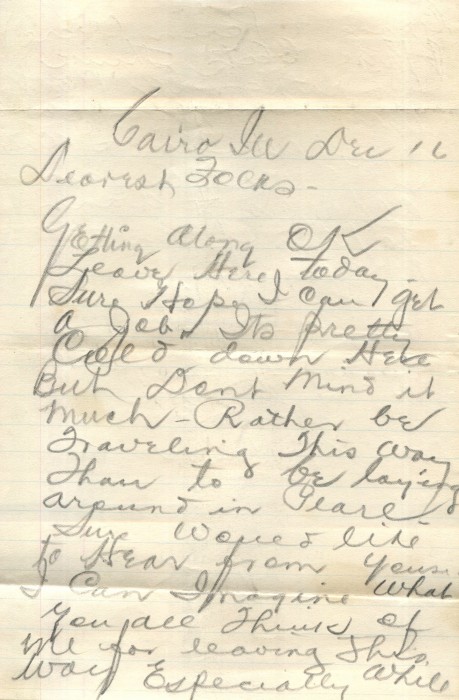 Cairo Ill Dec 16
Dearest Folks -
Getting Along OK
Leave Here today -
Sure Hope I can get
a Job. Its pretty
Cold down Here
But Dont Mind it
much - Rather be
Traveling This Way
Than to be laying
around in
Sure Would like
to Hear from You
I Can Imagine What
You all Think of
Me for leaving This
Way Especially While